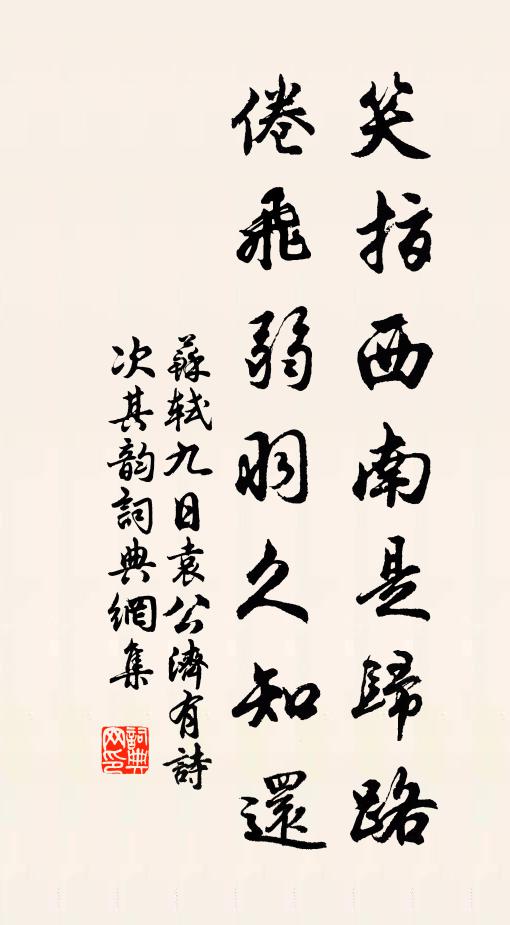 笑指西南是歸路
倦飛弱羽久知還
蘇軾九日袁公濟有詩
次其韵詞典網集
詞典
网印